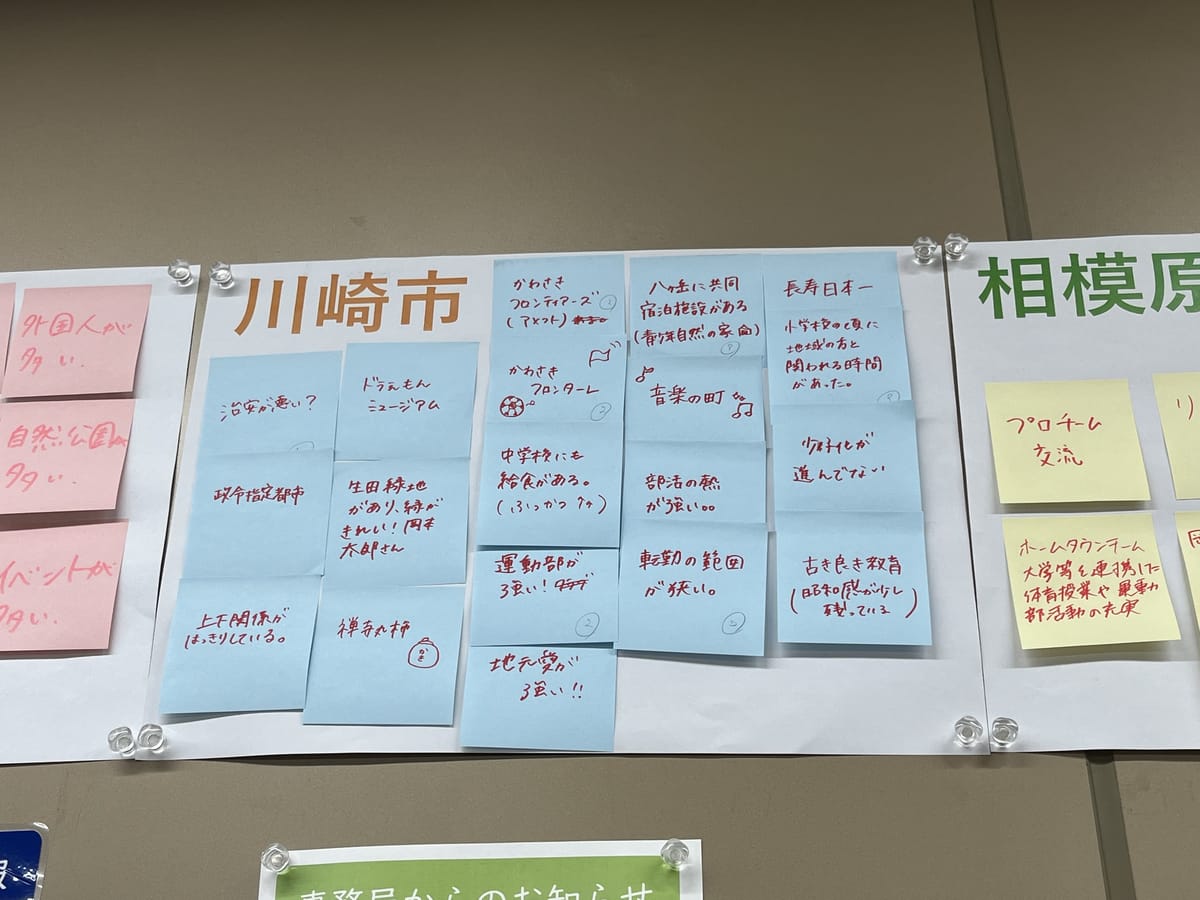 外国人が
多い.
自然公園が
多い.
イベントが
多い.
川崎市
治安が悪い?
政令指定都市
上下関係が
はっきりしている。
ドラえもん
ミュージアム
生田緑地
があり、緑が
きれい!岡本
太郎さん
禅寺丸柿
かき
かわさき
フロンティアーズ
(アメフト)
①
かわさき
フロンターレ
②
中学校にも
給食がある。
(ふっかつ↑↑)
運動部が
強い!
②
地元愛が
強い!!
八ヶ岳に共同
宿泊施設がある
(青少年自然の家
音楽の町
部活の熱
が強い。。
転勤の範囲
が狭い。
長寿日本一
小学校の頃に
地域の方と
関われる時間
があった。
少子化が
進んでない
古き良き教育
(昭和感が少し
残っている)
相模原
プロチーム
交流
リ
ホームタウンチーム
大学等と連携した
体育授業や運動
部活動の充実
事務局からのお知らせ